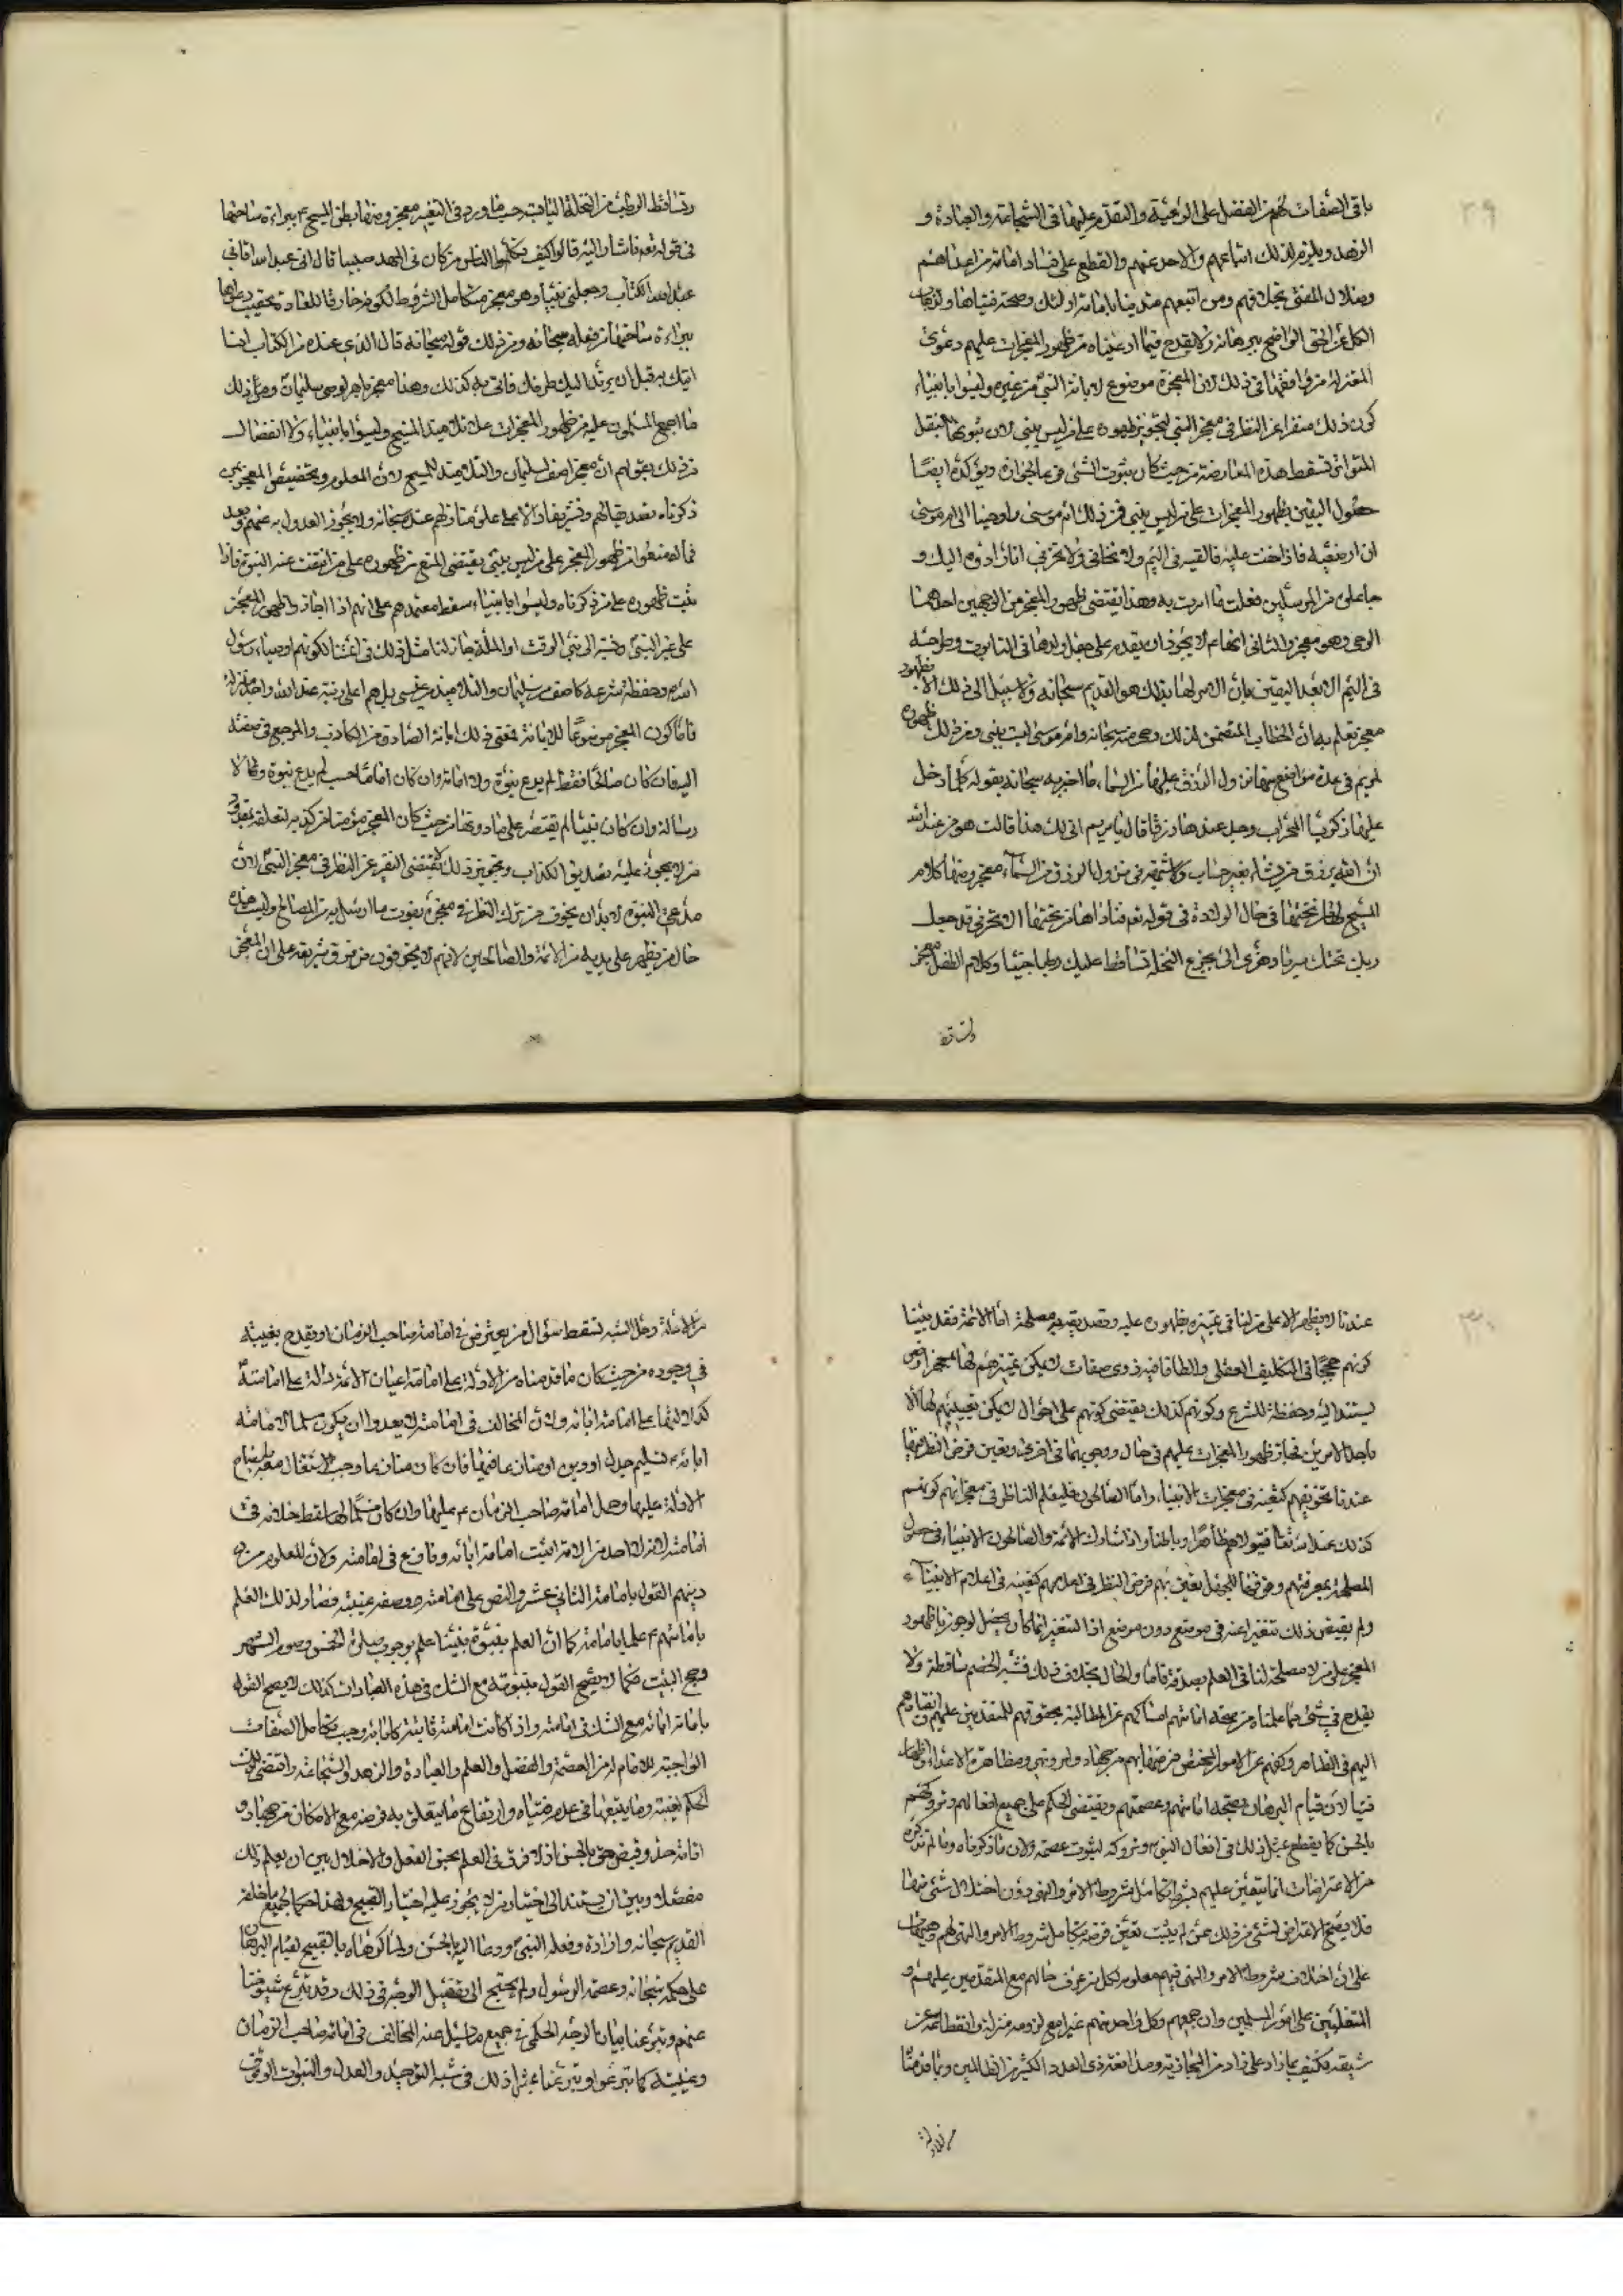 ٢٩
باقي الصفات لهم من الفضل على الرعية والتقدم عليها في الشجاعة والعبادة و
الزهد ويلزم لذلك اتباعهم والاخذ عنهم والقطع على فساد امامة من عداهم
وضلال المفتي بخلافهم ومن اتبعهم متدينا بامامة اولئك وصحة فتياها وذهاب
الكل عن الحق الواضح ببرهانه ولا يقدح فيما ادعيناه من ظهور المعجزات عليهم دعوى
المعتزلة ومن وافقها في ذلك لان المعجزة موضوع لابانة النبي من غيره وليسوا بانبياء
كون ذلك منفرا عن النظر في معجز النبي لتجويز ظهوره على من ليس بنبي لان ثبوتها بالنقل
المتواتر تسقط هذه المعارضة من حيث كان ثبوت الشئ فرعا لجوازه ويؤكده ايضا
حصول اليقين بظهور المعجزات على من ليس بنبي فمن ذلك ام موسى واوحينا الى ام موسى
ان ارضعيه فاذا خفت عليه فالقيه في اليم ولا تخافي ولا تحزني انا رادوه اليك و
جاعلوه من المرسلين فعلت ما امرت به وهذا يقتضي ظهور المعجز من الوجهين احدهما
الوحي وهو معجز والثاني انها لا يجوز ان يقدم على جعل ولدها في التابوت وطرحه
في اليم الا بعد اليقين بان الامر لها بذلك هو القديم سبحانه ولا سبيل الى ذلك الا بظهور
معجز تعلم به ان الخطاب المتضمن لذلك وحي منه سبحانه وام موسى ليست بنبي ومن ذلك ظهوره
لمريم في عدة مواضع منها نزول الرزق عليها من السماء ما اخبر به سبحانه بقوله كلما دخل
عليها زكريا المحراب وجد عندها رزقا قال يا مريم انى لك هذا قالت هو من عند الله
ان الله يرزق من يشاء بغير حساب ولا شبهة في نزول الرزق من السماء معجز ومنها كلام
المسيح لها من تحتها في حال الولادة في قوله تعه فناداها من تحتها الا تحزني قد جعل
ربك تحتك سريا وهزي اليك بجذع النخلة تساقط عليك رطبا جنيا وكلام الطفل معجز
وتساقط
وتساقط الرطب من النخلة اليابسة حسب ما ورد في التفسير معجز ومنها نطق المسيح ع ببراءة ساحتها
في قوله تعه فاشارت اليه قالوا كيف نكلم من كان في المهد صبيا قال اني عبد الله اتاني
الكتاب وجعلني نبيا وهو معجز متكامل الشروط لكونه خارقا للعادة تعقيب دعواها
ببراءة ساحتها من فعله سبحانه ومن ذلك قوله سبحانه قال الذي عنده علم من الكتاب انا
اتيك به قبل ان يرتد اليك طرفك فاتى به كذلك وهذا معجز باهر لوصي سليمان ومن ذلك
ما اجمع المسلمون عليه من ظهور المعجزات على تلامذة المسيح وليسوا بانبياء ولا انفصال
من ذلك بقولهم ان معجز اصف لسليمان والتلامذة للمسيح لان المعلوم تخصيص المعجز بمن
ذكرناه بعد دعواهم على منازلهم عنده سبحانه ولا يجوز العدول به عنهم وبعد
فمالهم منعوا من ظهور المعجز على من ليس بنبي يقتضي المنع من ظهوره على من انتفت عنه النبوة فاذا
ثبت ظهوره على من ذكرناه وليسوا بانبياء سقط معتمدهم على انهم اذا اجازوا ظهور المعجز
على غير النبي ونسبه الى نبي الوقت او الملة جاز لنا مثل ذلك في ائمتنا لكونهم اوصياء رسول
الله ص وحفظة شرعه كاصف من سليمان والتلامذة من عيسى بل هم اعلى رتبة عند الله واجل منزلة
فاما كون المعجز موضوعا للابانة فمعنى ذلك ابانة الصادق من الكاذب والمرجع في صفته
اليه فان كان صالحا فقط لم يدع نبوة ولا امامة وان كان اماما حسب لم يدع نبوة ولا
رسالة وان كان نبيا لم يقتصر على ما دونها من حيث كان المعجز مؤمنا من كذبه لتعلقه بتصديق
من لا يجوز عليه تصديق الكذاب وتجويز ذلك لا يقتضي التنفير عن النظر في معجز النبي لان
مدعي النبوة لا بد ان يخوف من ترك النظر في معجزه بفوت ما ارسل به من المصالح وليست هذه
حال من يظهر على يديه من الائمة والصالحين لانهم لا يخوفون من فوت شريعة على ان المعجز
٣٠
عندنا لا يظهر الا على من لنا في تمييزه بظهوره عليه وتصديقه به مصلحة اما الائمة فقد بينا
كونهم حججا في التكليف العقلي والطافا فيه ذوي صفات لا يمكن تمييزهم لها الا بمعجز او نص
يستند اليه وحفظة للشرع وكونهم كذلك يقتضي كونهم على احوال لا يمكن تعيينهم لها الا
باحد الامرين فجاز ظهور المعجزات عليهم في حال ووجب في اخرى وتعين فرض النظر فيها
عندنا تخويفهم كتعينه في معجزات الانبياء واما الصالحون فليعلم الناظر في معجزاتهم كونهم
كذلك عند الله تعا فيتولاهم ظاهرا وباطنا واذا شارك الائمة والصالحون الانبياء في حصول
المصلحة بمعرفتهم وخوفنا للجهل بهم تعين فرض النظر في اعلامهم كتعينه في اعلام الانبياء
ولم يقتض ذلك تنفيرا عنه في موضع دون موضع اذ التنفير انما كان يحصل لو جوزنا ظهور
المعجز على من لا مصلحة لنا في العلم بصدقه فاما والحال بخلاف ذلك فشبه الخصم ساقطة ولا
يقدح في شئ مما علمناه من صحة امامتهم امساكهم عن المطالبة بحقوقهم للمتقدمين عليهم وانقيادهم
اليهم في الظاهر وكفهم عن الامور المختص فرضها بهم من جهاد وامر ونهي ومظاهرة الاعداء
فتيا لان قيام البرهان بصحة امامتهم وعصمتهم يقتضي الحكم على جميع افعالهم وتروكهم
بالحسن كما يقطع بمثل ذلك في افعال النبي ص وتروكه لثبوت عصمته ولان ما ذكرناه وما لم نذكره
من الاعتراضات انما يتعين عليهم بشرط تكامل شروط الامر والنهي دون اختلال شئ منها
فلا يصح الاعتراض لشئ من ذلك عمن لم يثبت تعين فرضه بتكامل شروط الامر والنهي لهم
على ان اختلاف شروط الامر والنهي فيهم معلوم لكل من عرف حالهم مع المتقدمين عليهم و
المتغلبين على امور المسلمين وان جميعهم وكل واحد منهم غير امع لزومه منزله وانقطاعه عن
شيعته مكتف بما زاد على زاد من المحاذرة ذي العدد الكثير من الظالمين وبما قدمنا
من الادلة
من الادلة وحل الشبه تسقط سؤال من يعترض في امامة صاحب الزمان او يقدح بغيبته
في وجوده من حيث كان ما قدمناه من الادلة على امامة اعيان الائمة دالة على امامته
كدلالتها على امامة ابائه ولان المخالف في امامته لا يعدو ان يكون مسلما لامامة
ابائه ع تسليم جدل او دين او منازعا فيها فان كان منازعا وجب الانتقال معه
الادلة عليها وحمل امامة صاحب الزمان ع عليها وان كان مسلما لها سقط خلافه في
امامته لانه لا احد من الامة اثبت امامة ابائه ونازع في امامته ولان المعلوم من
دينهم القول بامامة الثاني عشر والنص على امامته ووصف غيبته فصار لذلك العلم
بامامتهم ع علما بامامته كما ان العلم بنبوة نبينا علم بوجوب صلوة الخمس وصوم الشهر
وحج البيت فكما لا يصح القول بنبوته مع الشك في هذه العبادات كذلك لا يصح القول
بامامة ابائه مع الشك في امامته واذا كانت امامته ثابتة كابائه وجب تكامل الصفات
الواجبة للامام له من العصمة والفضل والعلم والعبادة والزهد والشجاعة واقتضى ذلك
الحكم لغيبته وما يتبعها في عدم فتياه وارتفاع ما يتعلق به فرضه مع الامكان من جهاد و
اقامة حد وقبض حق بالحسن اذ لا فرق في العلم بحسن الفعل والاخلال بين ان يعلم ذلك
مفصلا وبين ان يستند الى اختيار من لا يجوز عليه اختيار القبيح ولهذا حكمنا لجميع ما خلقه
القديم سبحانه واراده وفعله النبي ص ودعا اليه بالحسن ولما كرهاه بالقبيح لقيام البرهان
على حكمته سبحانه وعصمة الرسول ولم يحتج الى تفصيل الوجه في ذلك وقد تبرع شيوخنا
عنهم وتبرعنا ببيان الوجه الحكمي في جميع ما يسئل عنه المخالف في امامة صاحب الزمان
وغيبته كما تبرعوا وتبرعنا بمثل ذلك في شبه التوحيد والعدل والنبوات